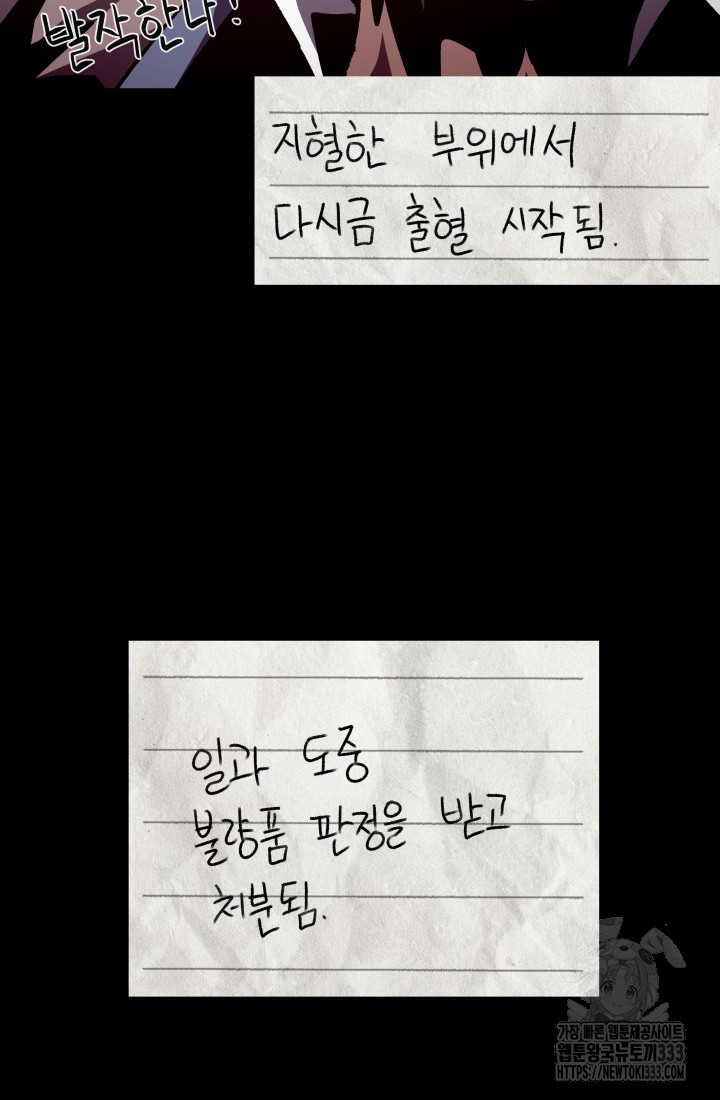 발작한다!
지혈한 부위에서
다시금 출혈 시작됨.
일과 도중
불량품 판정을 받고
처분됨.
가장 빠른 웹툰제공사이트
웹툰왕국뉴토끼333
HTTPS://NEWTOKI333.COM